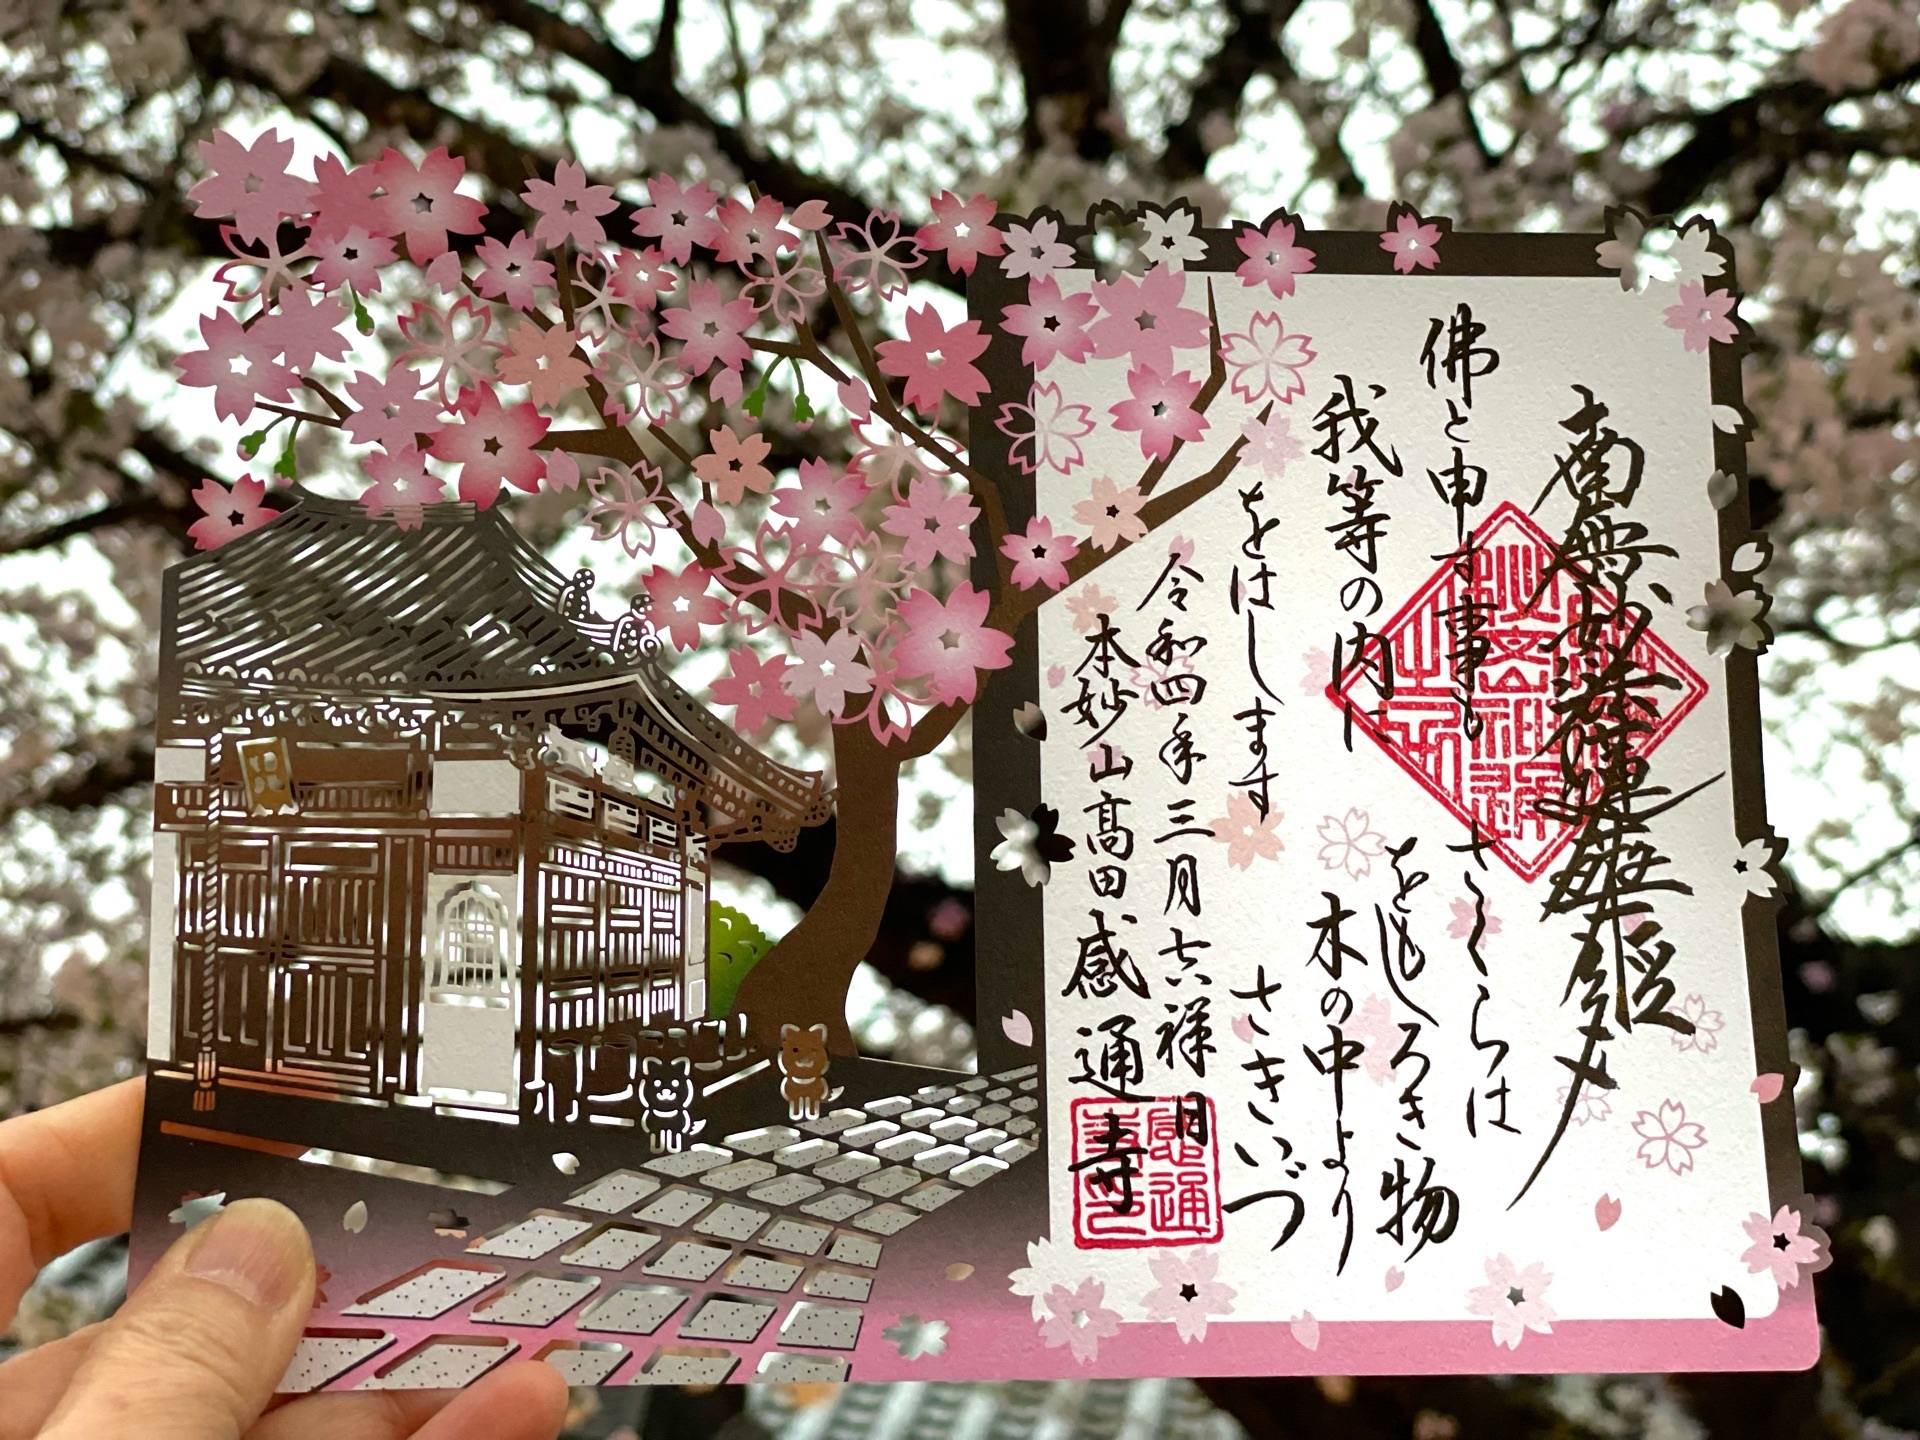 南無妙法蓮華経
佛と申す事も
我等の内に
をはします
さくらは
をもしろき物
木の中より
さきいづ
令和四年三月吉祥日
本妙山高田感通寺
感通
寺印